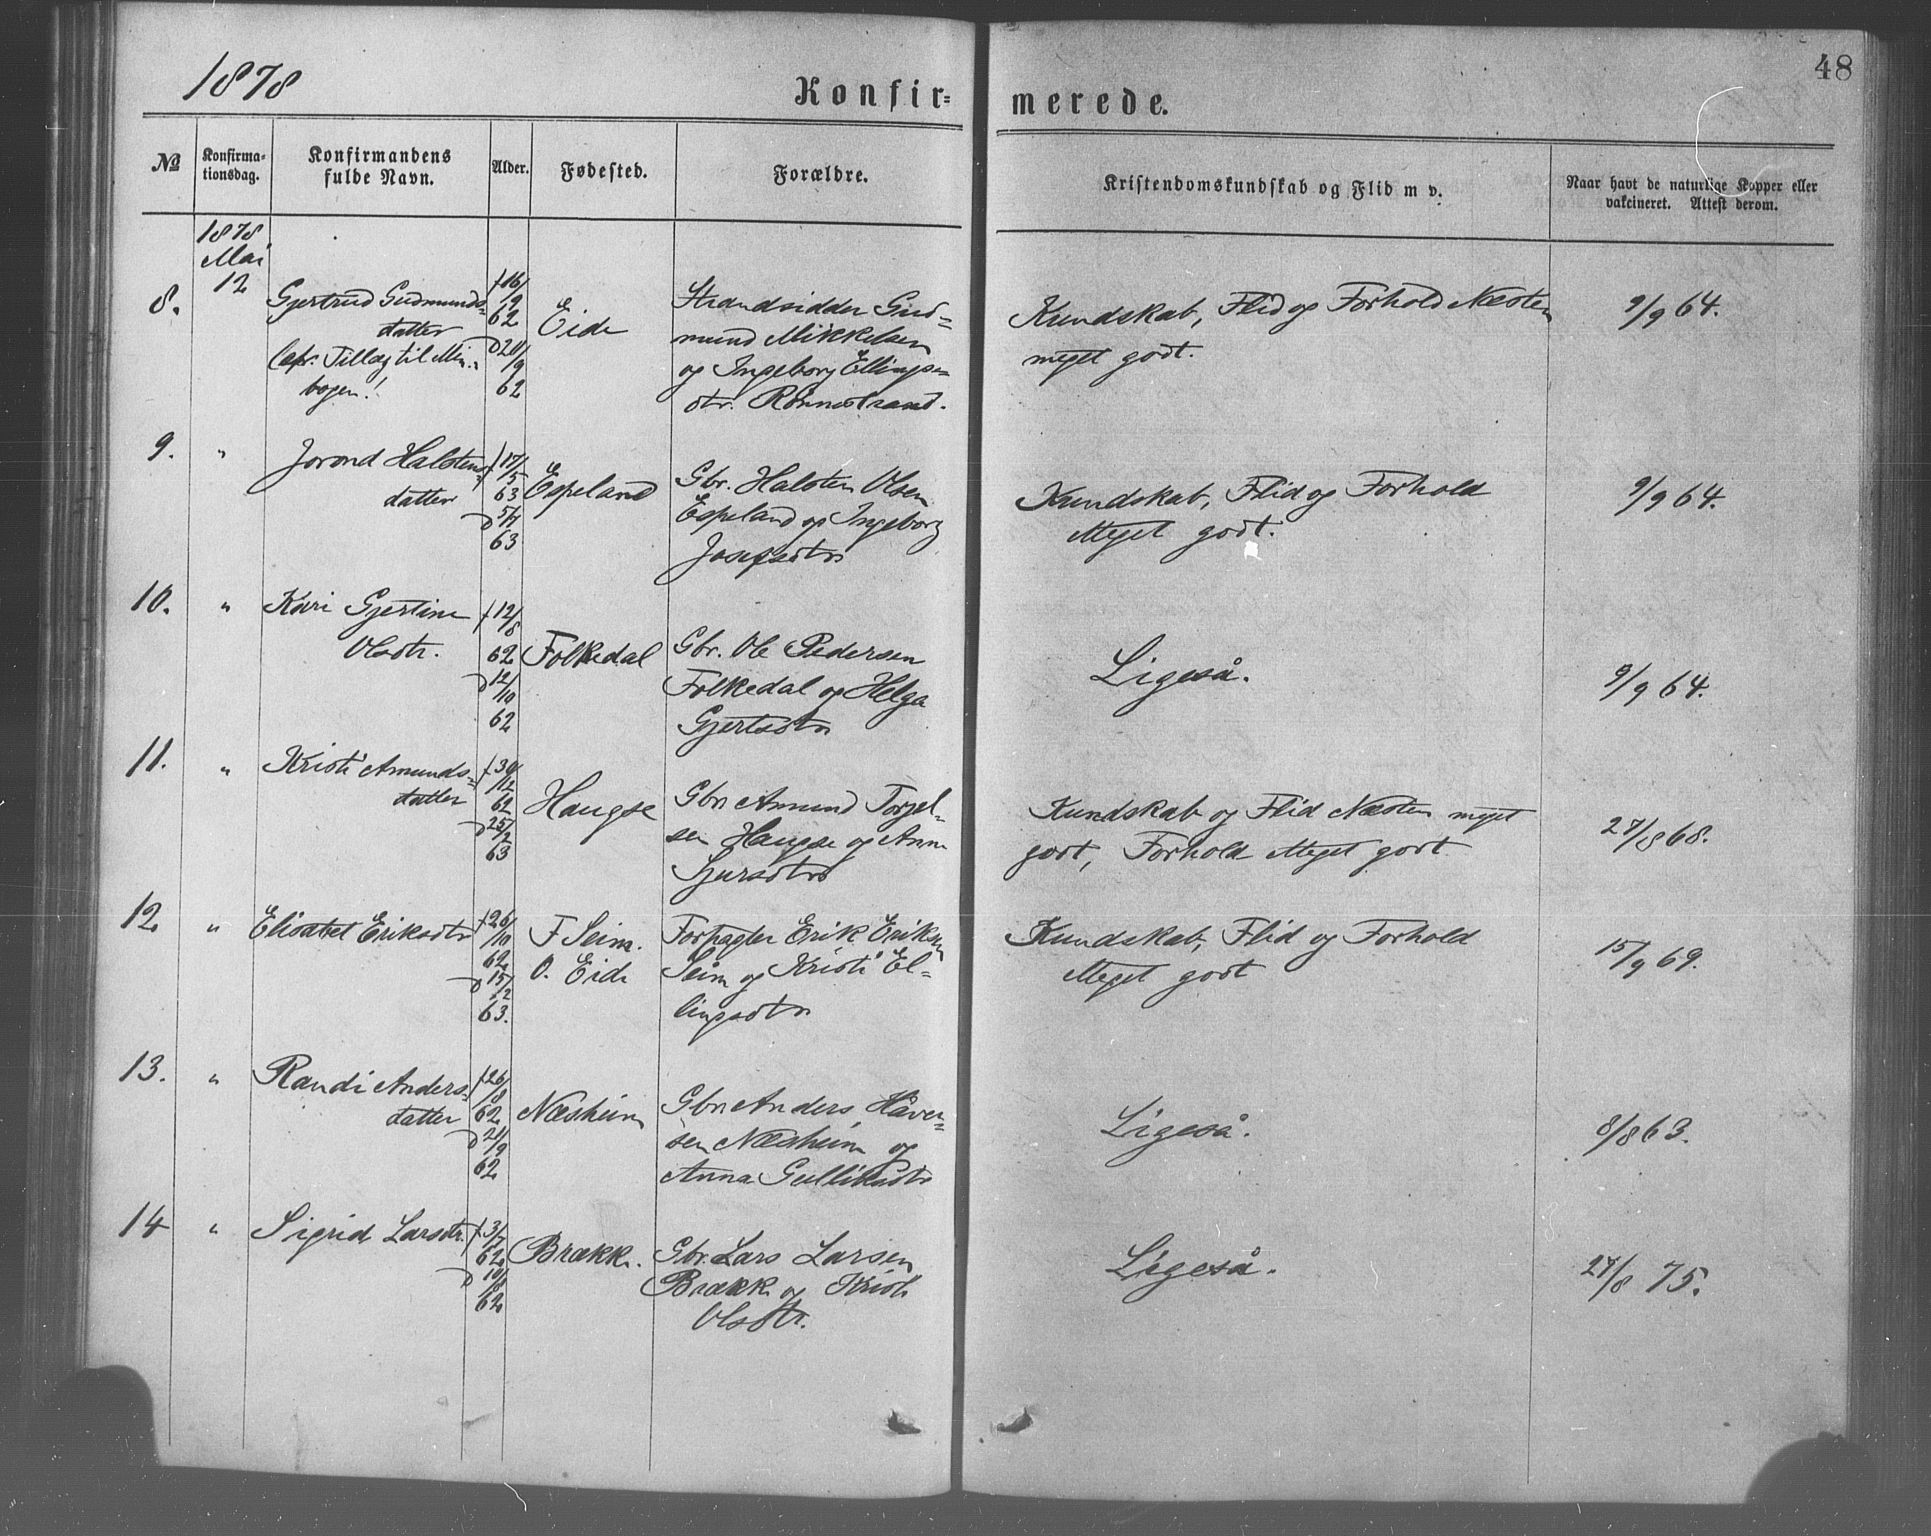 1878
48
Konfir=
merede.
№
Konfirma-
tionsdag.
Konfirmandens
fulde Navn.
Alder.
Fødested.
Forældre.
Kristendomskundskab og Flid m v.
Naar havt de naturlige Kopper eller
vakcineret. Attest derom.
1878
Mai
12
8.
Gjertrud Gudmunds=
datter
Tillæg til Min.
bogen!
f 16/9
62
D 21/9
62
Eide
Strandsidder Gud=
mund Mikkelsen
og Ingeborg Ellings=
dtr. Rønnestrand.
Kundskab, Flid og Forhold Næsten
meget godt.
9/9 64.
9.
"
Jorond Halstens=
datter
f 17/5
63
D 5/7
63
Espeland
Gbr. Halsten Olsen
Espeland og Ingeborg
Josefsdtr
Kundskab, Flid og Forhold
Meget godt.
9/9 64.
10.
"
Kari Gjertine
Olsdtr.
f 12/8
62
D 12/10
62
Folkedal
Gbr. Ole Pedersen
Folkedal og Helga
Gjertsdtr
Ligeså.
9/9 64.
11.
"
Kristi Amunds=
datter
f 30/12
62
D 25/2
63
Haugse
Gbr Amund Torjel=
sen Haugse og Anna
Sjursdtr
Kundskab og Flid Næsten meget
godt, Forhold Meget godt
27/8 68.
12
"
Elisabet Eriksdtr
f 26/10
62
D 15/2
63.
F Seim.
O. Eide
Forpagter Erik Eriksen
Seim og Kristi El=
lingsdtr
Kundskab, Flid og Forhold
Meget godt
15/9 69.
13.
"
Randi Anders=
datter
f 26/8
62
D 21/9
62
Næsheim
Gbr Anders Håver=
sen Næsheim og
Anna Gulliksdtr
Ligeså.
8/8 63.
14
"
Sigrid Larsdtr.
f 3/7
62
D 10/8
62
Brække.
Gbr. Lars Larsen
Brække og Kristi
Olsdtr.
Ligeså.
27/8 75.